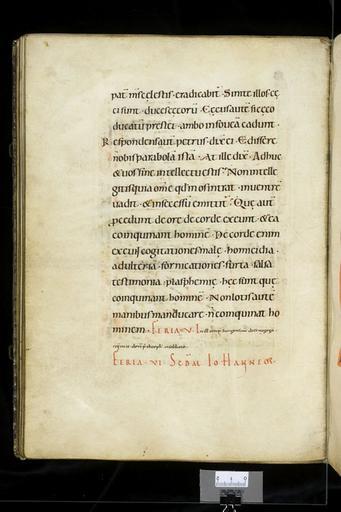 pat̄ ms̄ celestis · eradicabit̄ · Sinite illos · cę
ci sunt · duces cęcorū · Cęcus aut̄ si cęco
ducatū prestet · ambo in foueā cadunt ·
Respondens aut̄ petrus · dix̄ ei · Edissere
nobis parabolā istā · At ille dix̄ · Adhuc
& uos sine intellectu estis · Non intelle
gitis quia om̄e qd̄ in os intrat · in uentrē
uadit · & in secessū emittit̄ · Quę aut̄
p̄cedunt de ore · de corde exeunt · & ea
coinquinant hominē · De corde enim
exeunt cogitationes malę · homicidia ·
adulteria · fornicationes · furta · falsa
testimonia · blasphemię · hęc sunt quę
coinquinant hominē · Non lotis aut̄
manibus manducare · n̄ coinquinat ho
minem · FERIA · V ·
FERIA · VI · SCD̄M IOHANNEM ·